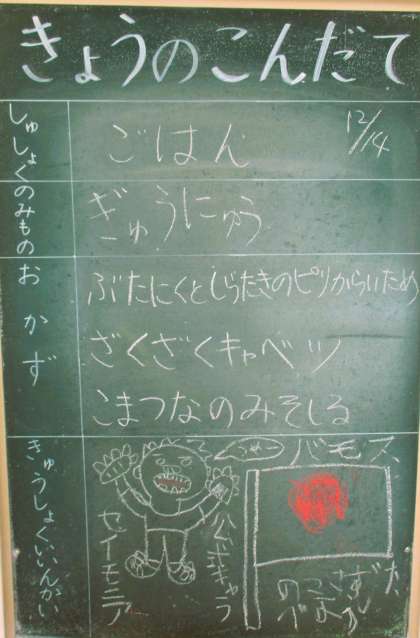 きょうのこんだて
12/14
しゅしょく
ごはん
のみもの
ぎゅうにゅう
おかず
ぶたにくとしらたきのピリからいため
ざくざくキャベツ
こまつなのみそしる
きゅうしょくいいんかい
バモス
公式キャラ
セイモニア